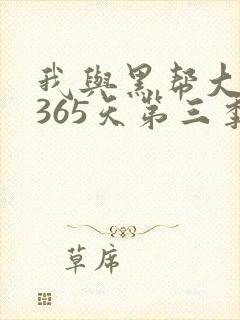 我與黑帮大
365天第三季
草席